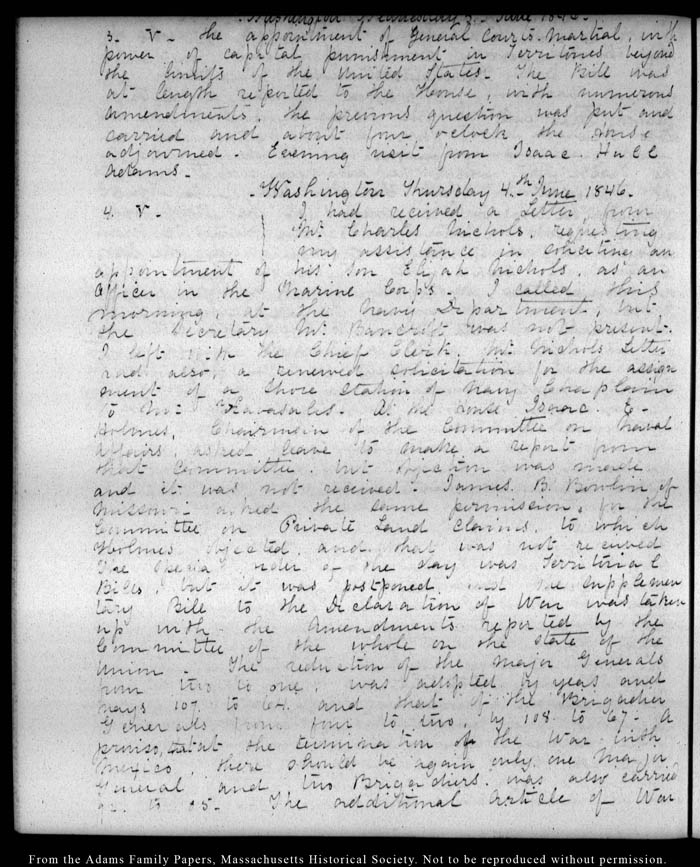 Washington Wednesday 3. June 1846.
3. V. the appointment of General Courts-Martial, with
power of capital punishment in Territories beyond
the limits of the United States. The Bill was
at length reported to the House, with numerous
amendments, the previous question was put and
carried and about four o'clock the House
adjourned. Evening visit from Isaac Hull
Adams.
Washington Thursday 4th June 1846.
4. V. I had received a Letter from
Mr Charles Nichols, requesting
my assistance in soliciting an
appointment of his Son Elijah Nichols, as an
Officer in the Marine Corps. I called this
morning, at the Navy Department, but
the Secretary Mr Bancroft was not present.
I left with the Chief Clerk, Mr Nichols Letter
and also, a renewed solicitation for the assign
ment of a shore station of Navy Chaplain
to Mr. At the House Isaac E.
Holmes, Chairman of the Committee on Naval
Affairs, asked leave to make a report from
that Committee, but objection was made
and it was not received. James B. Bowlin of
Missouri asked the same permission, for the
Committee on Private Land Claims, to which
Holmes objected and that was not received
The special order of the day was Territorial
Bills, but it was postponed and the supplemen
tary Bill to the Declaration of War was taken
up with the Amendments reported by the
Committee of the whole on the state of the
Union. The reduction of the Major Generals
from two to one, was adopted by yeas and
nays 107 to 64. and that of the Brigadier
Generals from four to two, by 108 to 67. A
proviso, that at the termination of the War with
Mexico, there should be again only one Major
General and two Brigadiers, was also carried
to The additional Article of War
From the Adams Family Papers, Massachusetts Historical Society. Not to be reproduced without permission.